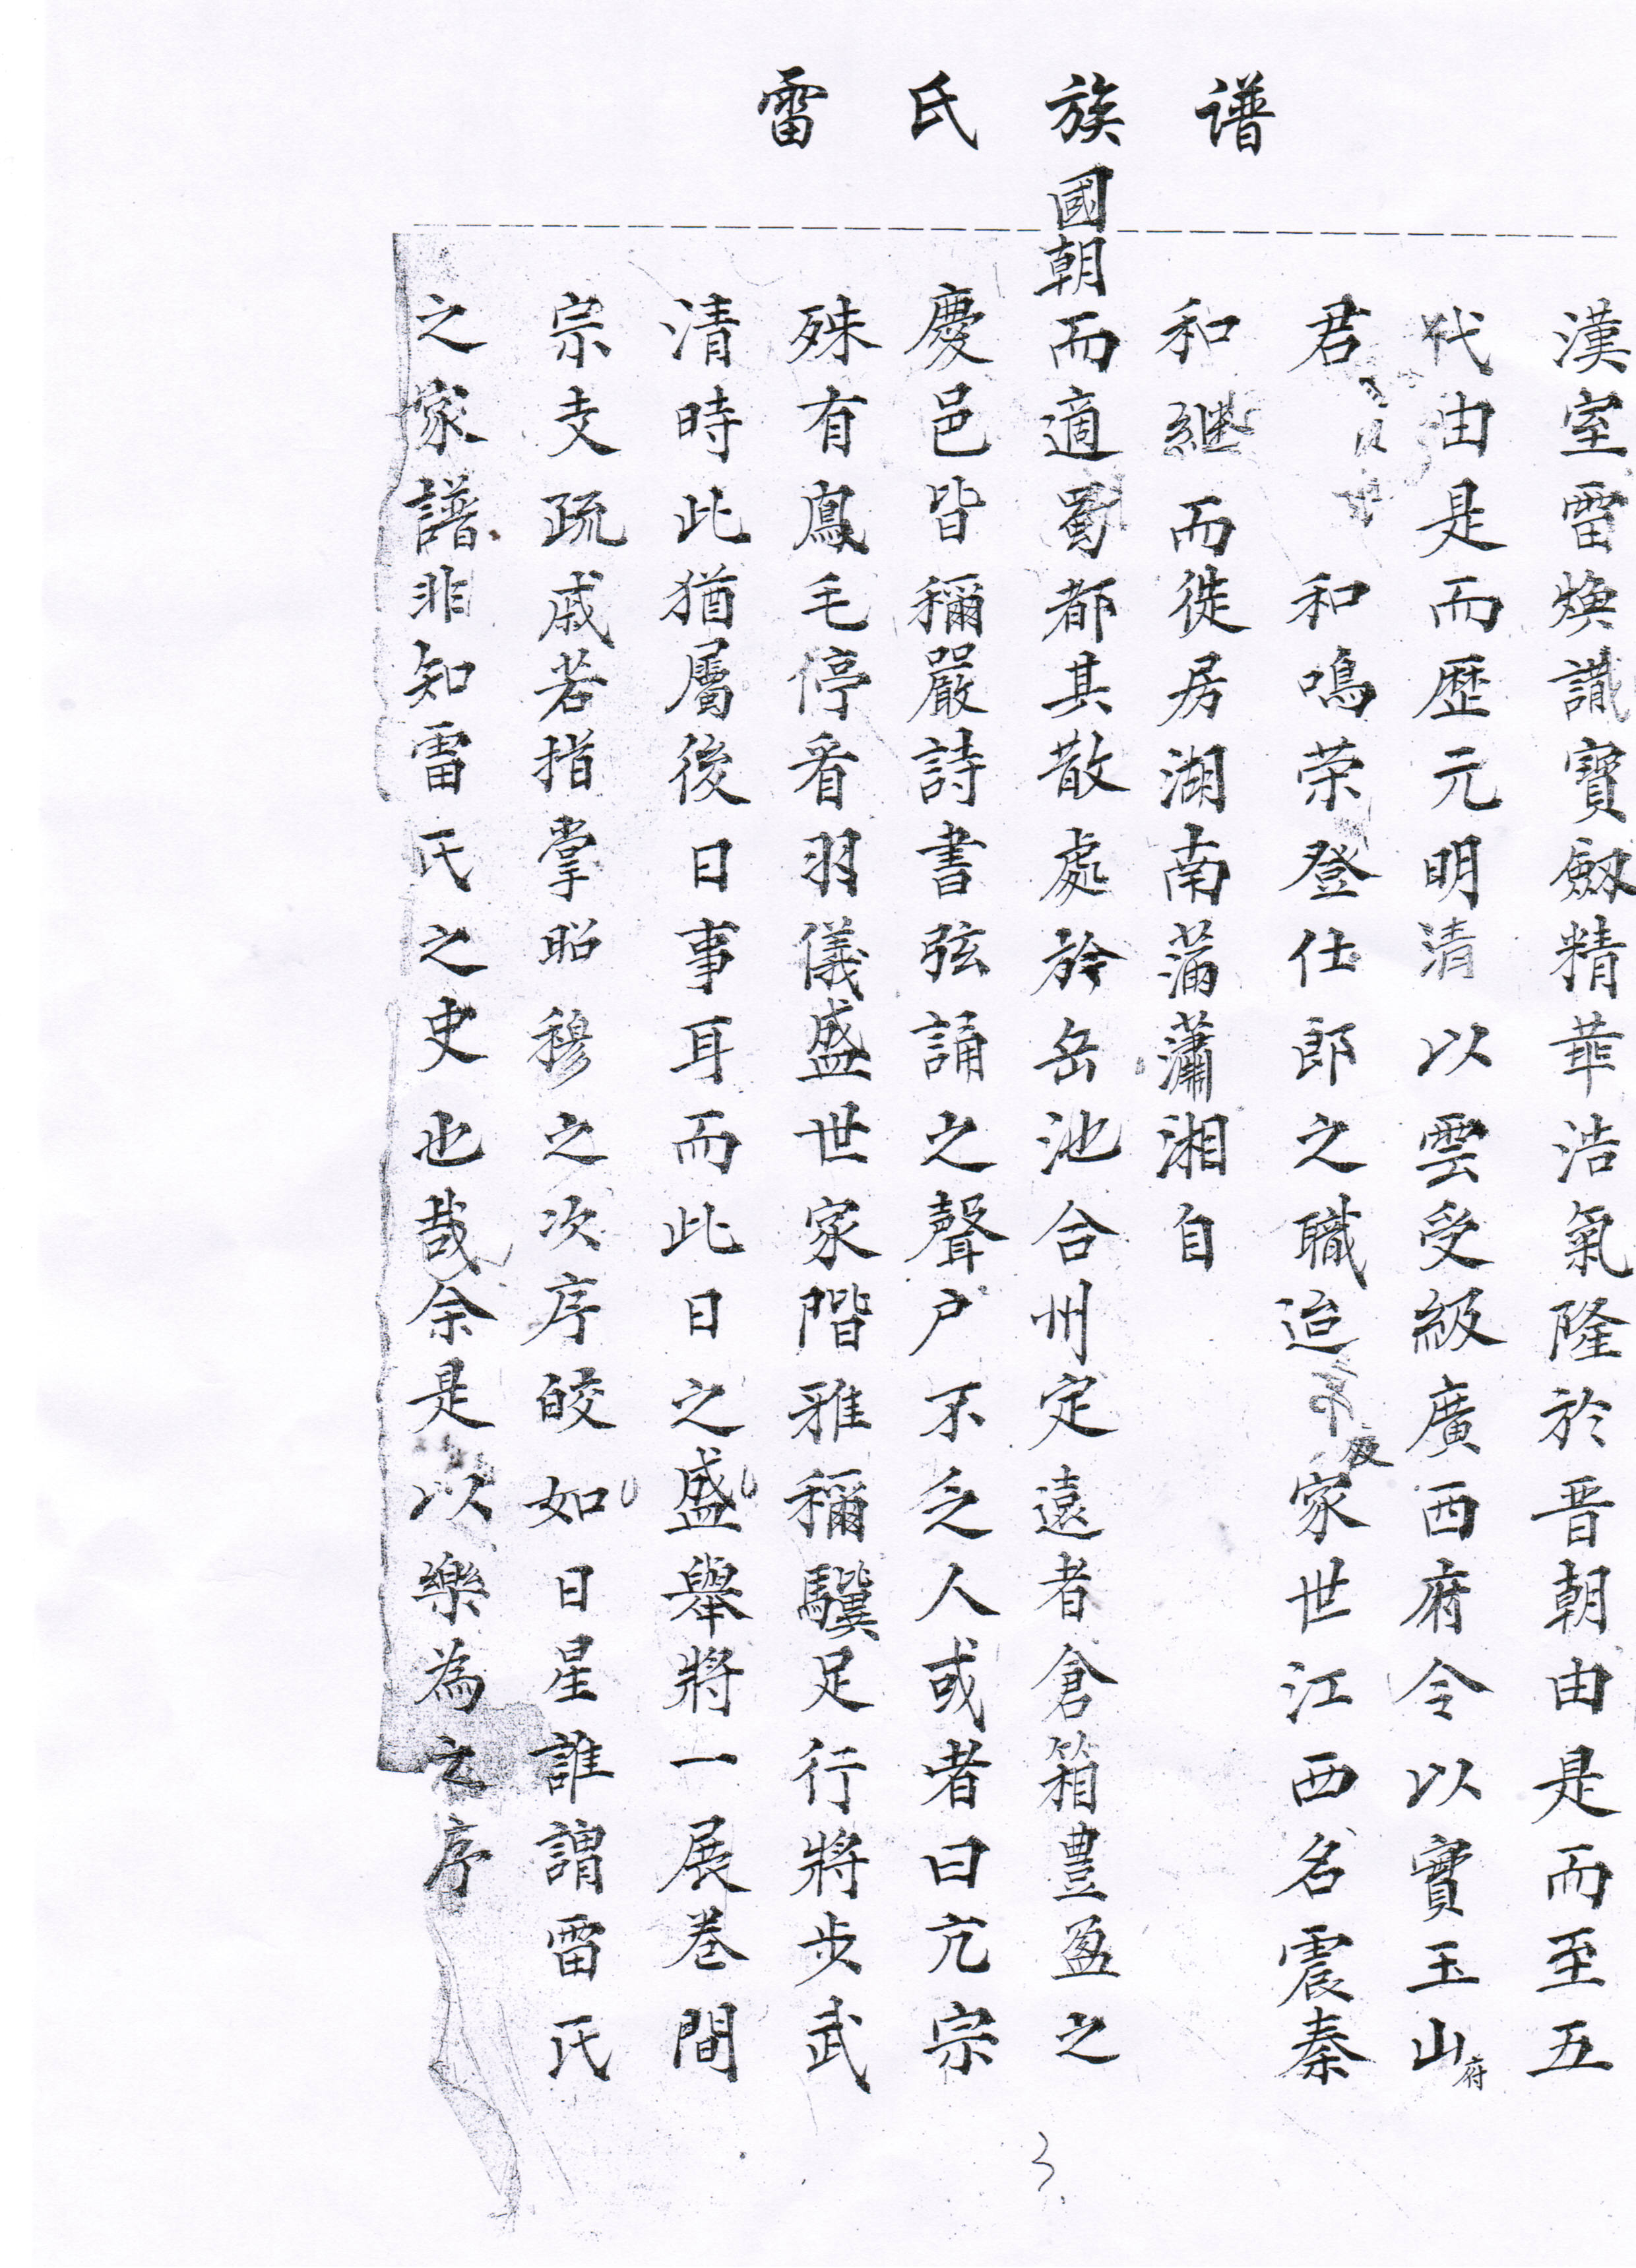 雷氏族谱
漢室雷煥識寶劔精華浩氣隆於晋朝由是而至五
代由是而歷元明清以雲受級廣西府令以寶玉山府
君和鳴荣登仕郎之職迨及家世江西名震秦
和継而徙居湖南蒲瀟湘自
國朝而適蜀都其散處於岳池合州定遠者倉箱豊盈之
慶邑皆稱嚴詩書弦誦之聲户不乏人或者曰亢宗
殊有鳳毛停看羽儀盛世家階雅稱驥足行將步武
清時此猶屬後日事耳而此日之盛舉將一展卷間
宗支疏戚若指掌昭穆之次序皎如日星誰謂雷氏
之家譜非知雷氏之史也哉余是以樂為之序
3